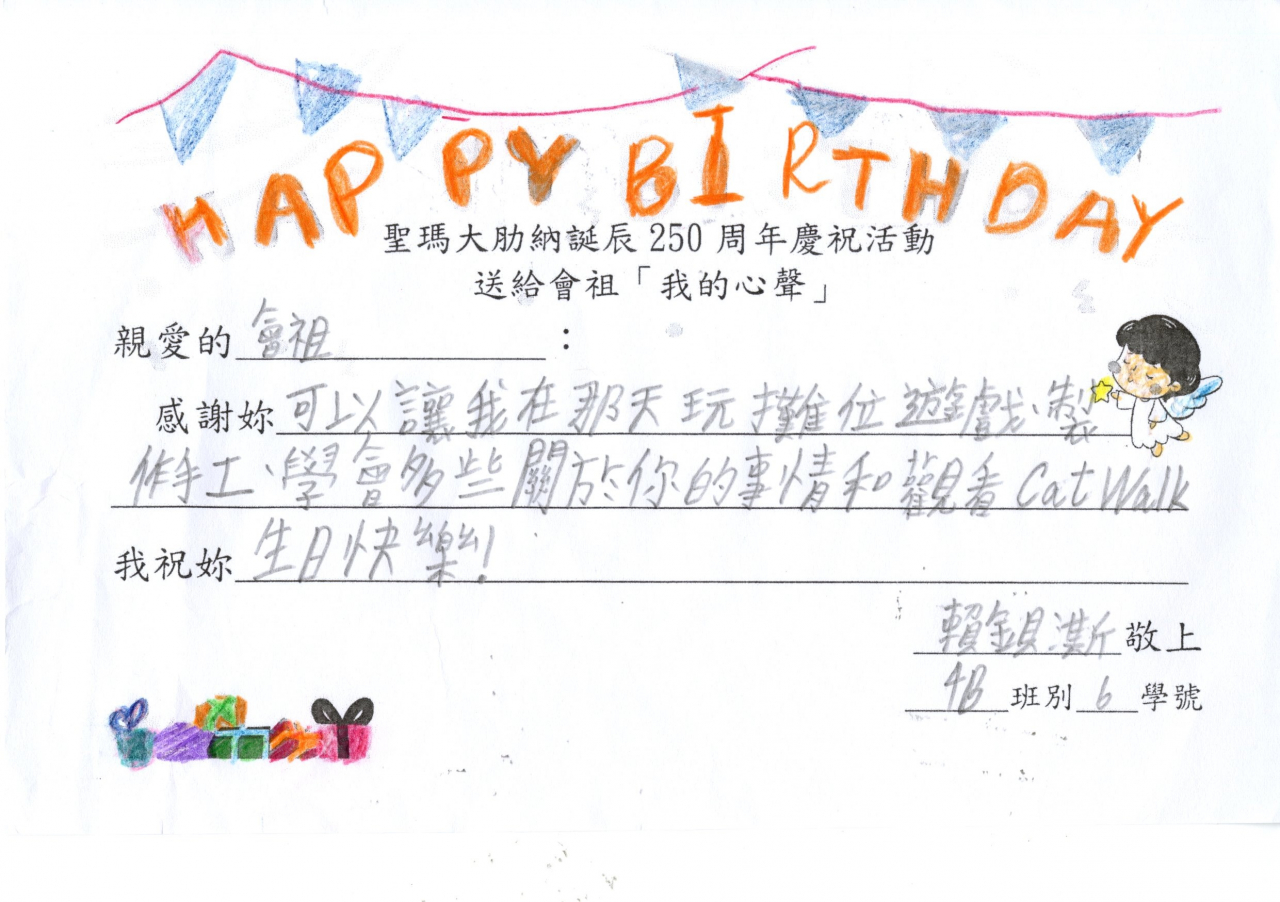 HAPPY BIRTHDAY
聖瑪大肋納誕辰 250 周年慶祝活動
送給會祖「我的心聲」
親愛的 會祖 :
感謝妳 可以讓我在那天玩攤位遊戲、製
作手工、學會多些關於你的事情和觀看 Cat Walk
我祝妳 生日快樂!
賴鎖澌 敬上
4B 班別 6 學號